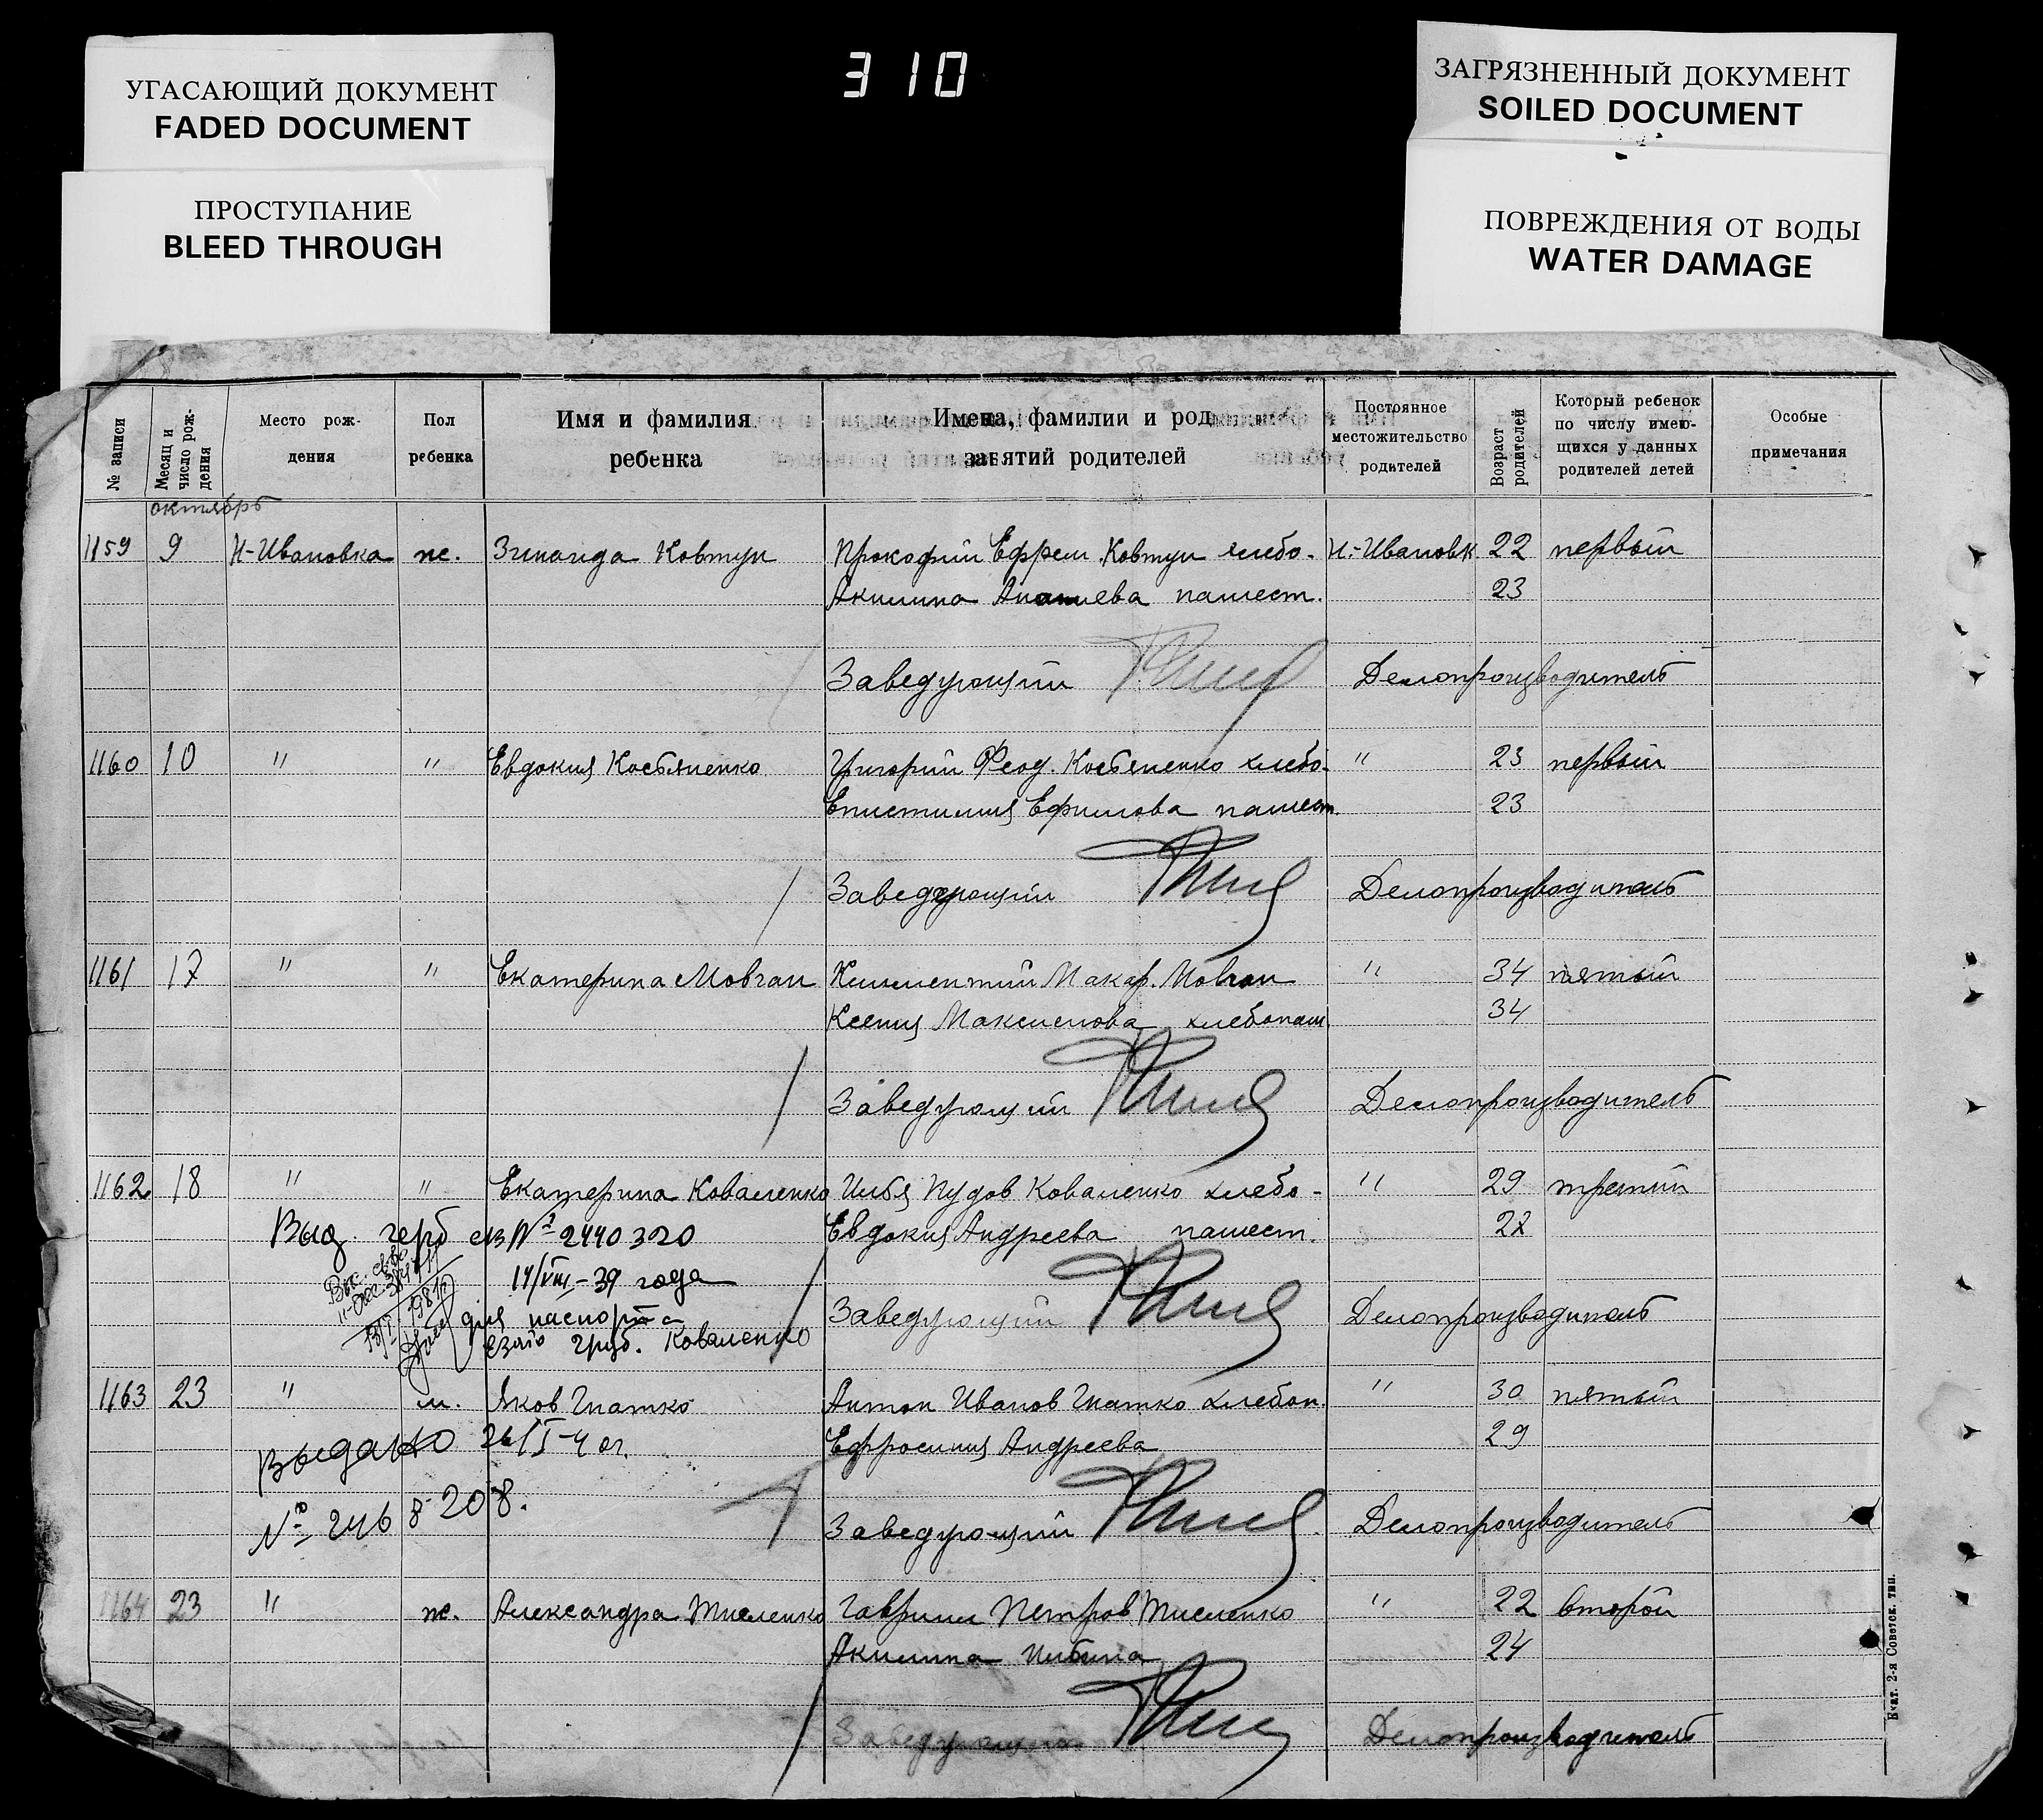 310
УГАСАЮЩИЙ ДОКУМЕНТ
FADED DOCUMENT
ПРОСТУПАНИЕ
BLEED THROUGH
ЗАГРЯЗНЕННЫЙ ДОКУМЕНТ
SOILED DOCUMENT
ПОВРЕЖДЕНИЯ ОТ ВОДЫ
WATER DAMAGE
№ записи
Месяц и число рождения
Место рождения
Пол ребенка
Имя и фамилия ребенка
Имена, фамилии и род занятий родителей
Постоянное местожительство родителей
Возраст родителей
Который ребенок по числу имеющихся у данных родителей детей
Особые примечания
октябрь
1159 9 Н-Ивановка ж. Зинаида Ковтун Прокофий Ефрем. Ковтун хлебо- Н.-Ивановк 22 первый
Акилина Ананиева пашест. 23
Заведующий Делопроизводитель
1160 10 " " Евдокия Костяненко Григорий Феод. Костяненко хлебо- " 23 первый
Епистимия Ефимова пашест. 23
Заведующий Делопроизводитель
1161 17 " " Екатерина Мовчан Климентий Макар. Мовчан " 34 пятый
Ксения Максимова хлебопаш. 34
Заведующий Делопроизводитель
1162 18 " " Екатерина Коваленко Илья Пудов Коваленко хлебо- " 29 третий
Выд. герб св № 2440320 Евдокия Андреева пашест. 22
14/VIII-39 года
Заведующий Делопроизводитель
для паспорта
Коваленко
1163 23 " м. Яков Гнатко Антон Иванов Гнатко хлебоп. " 30 пятый
Выдано 26/I-40г. Ефросиния Андреева 29
№ 246 8-208.
Заведующий Делопроизводитель
1164 23 " ж. Александра Тисленко Гавриил Петров Тисленко " 22 второй
Акилина Ильина 24
Заведующий Делопроизводитель
Екат. 2-я Советск. тип.